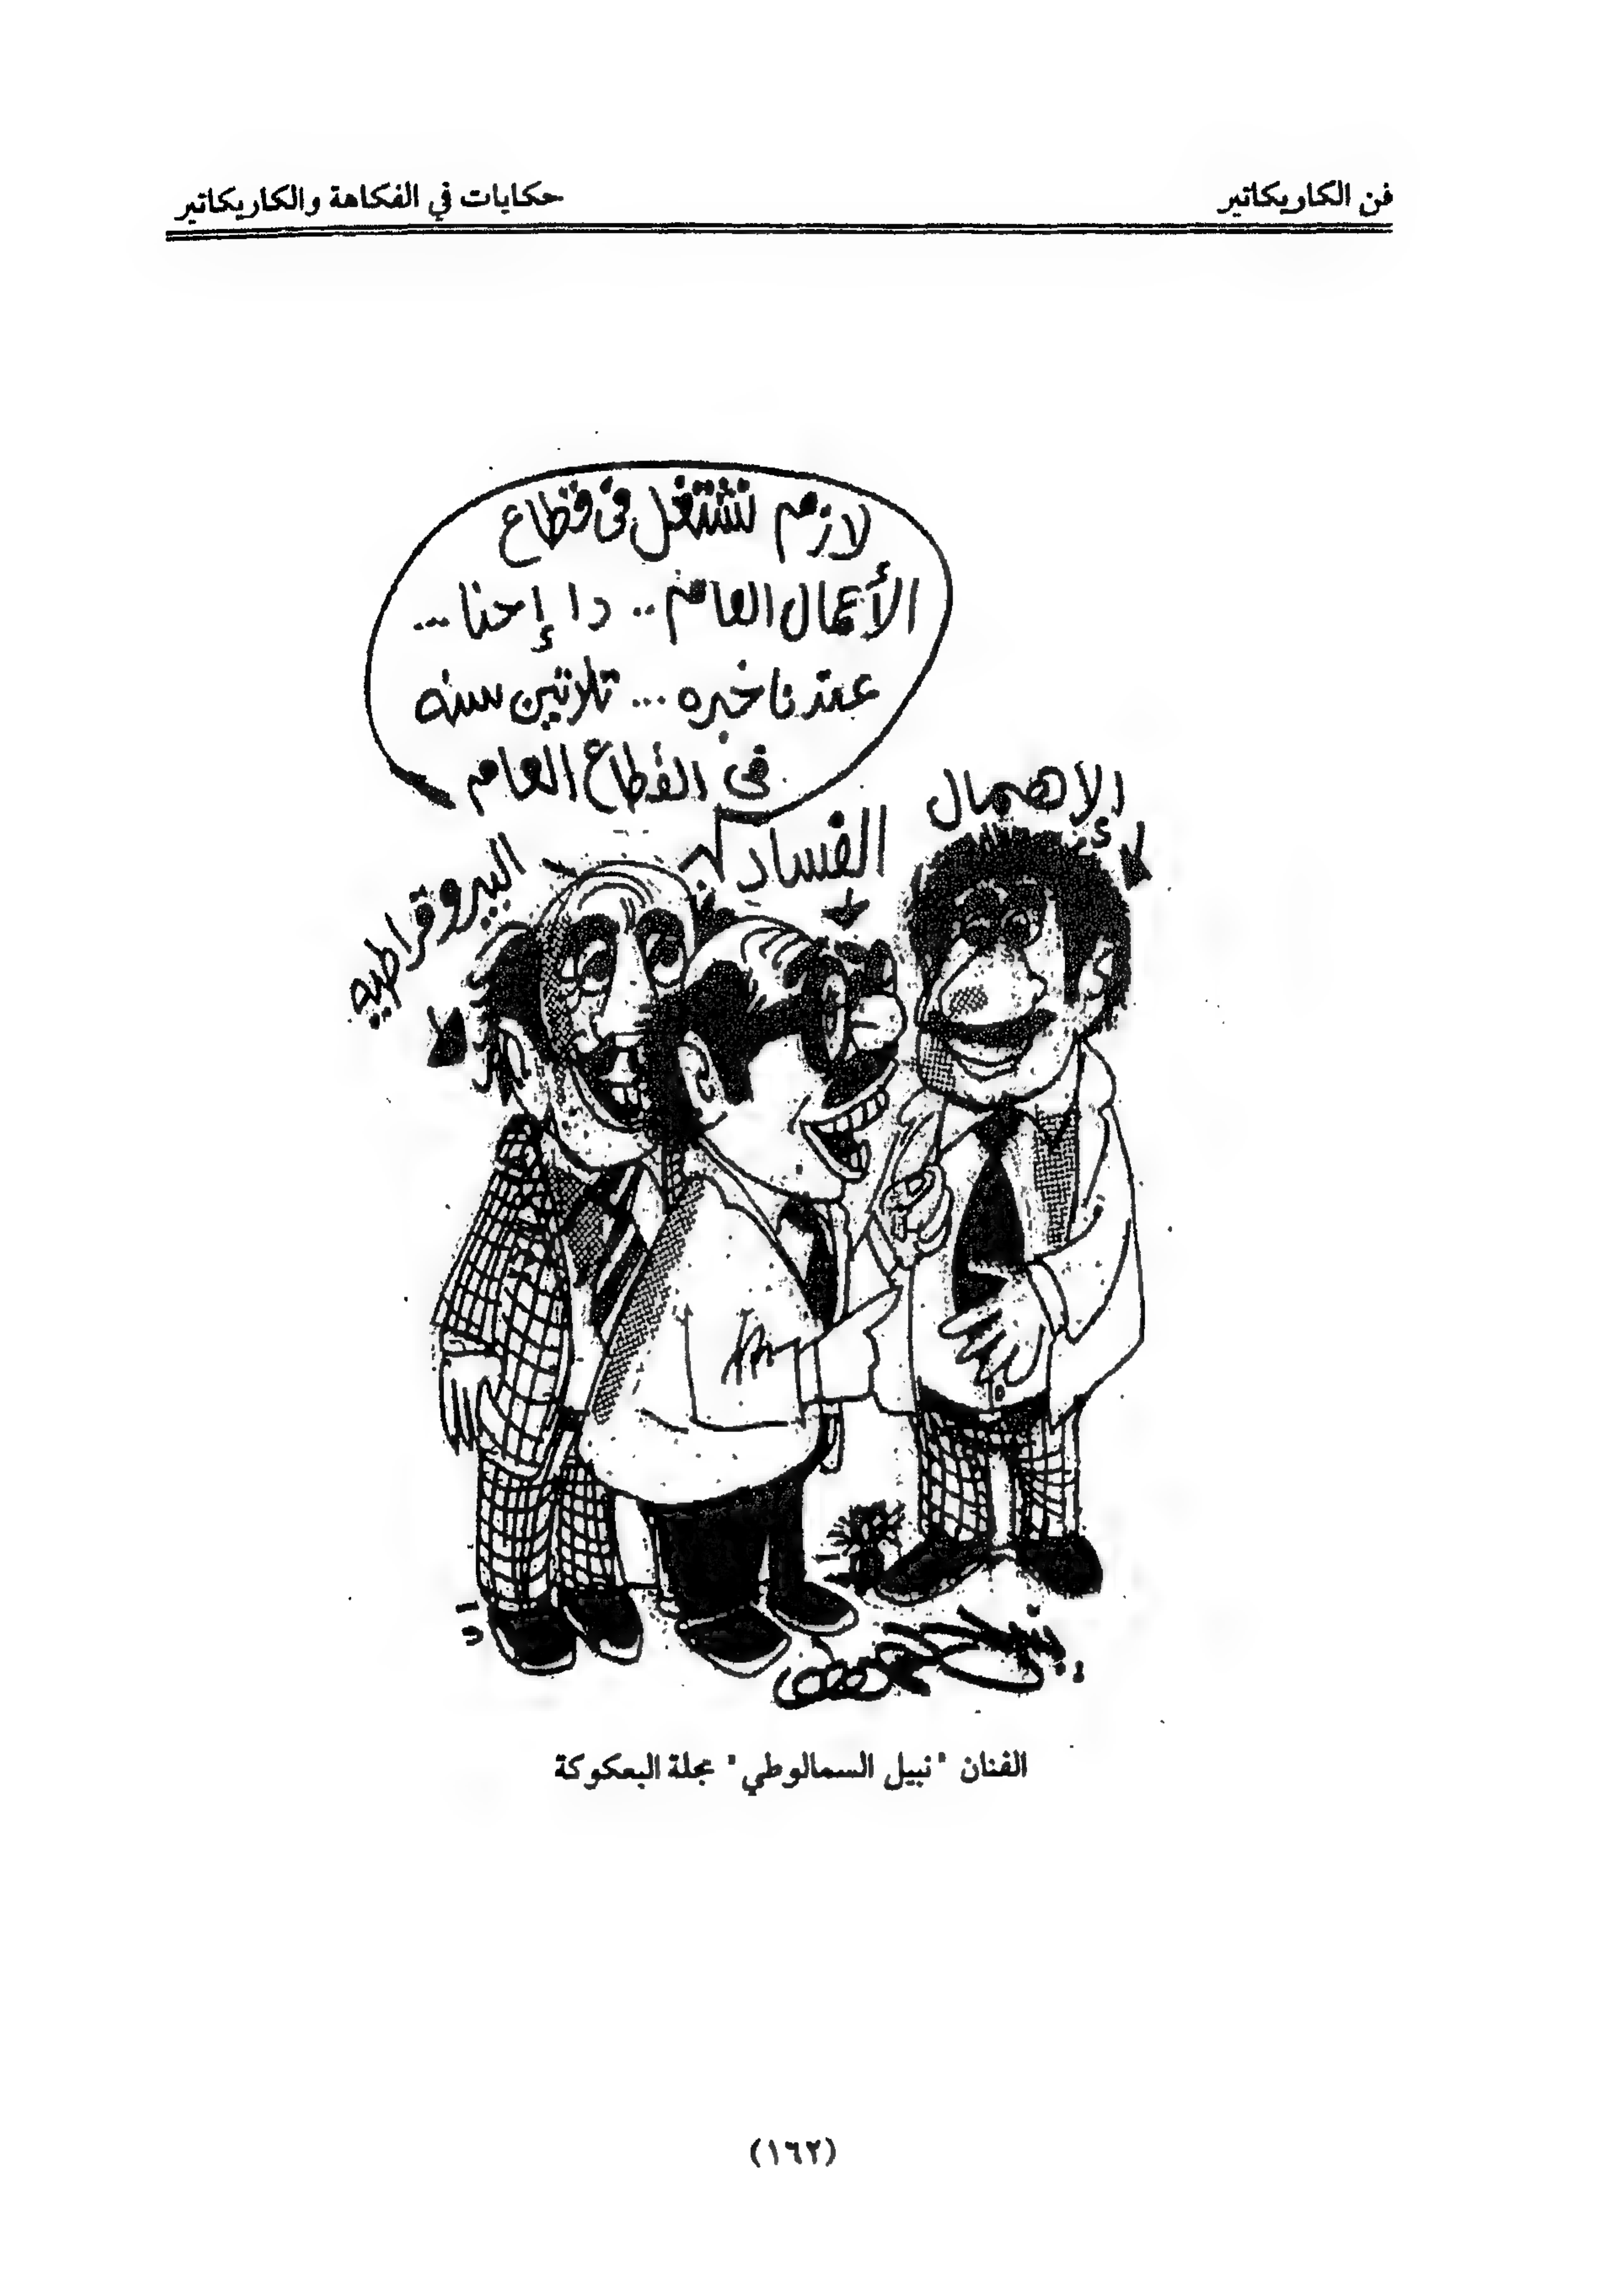 فن الكاريكاتير
حكايات في الفكاهة والكاريكاتير
لازم نشتغل فى قطاع
الأعمال العام .. دا إحنا ...
عندنا خبره ... تلاتين سنه
فى القطاع العام
الإهمال
الفساد
البيروقراطيه
الفنان "نبيل السمالوطي" مجلة البعكوكة
(١٦٢)